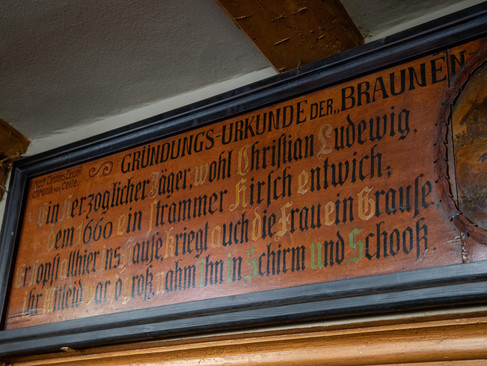 GRÜNDUNGS-URKUNDE DER „BRAUNEN
Ein Herzoglicher Jäger, wohl Christian Ludewig,
Dem 1660 ein strammer Hirsch entwich;
Er hopst allhier ins Hause kriegt auch die Frau ein Grause.
Ihr Mitleid war groß nahm ihn in Schirm und Schooß.